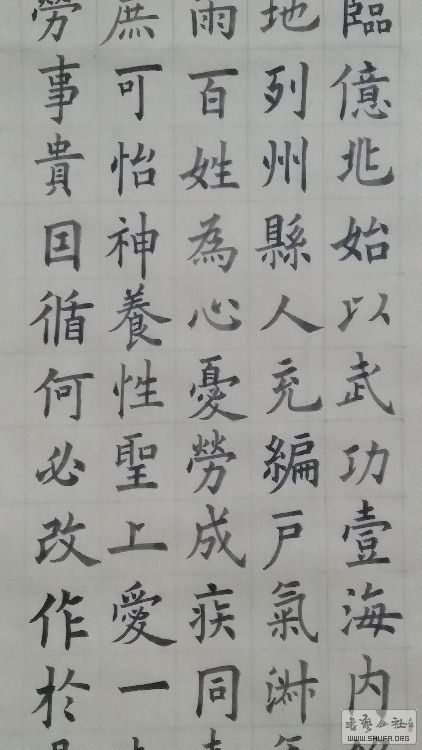 臨億兆始以武功壹海內
地列州縣人充編戶氣淋
雨百姓為心憂勞成疾同
庶可怡神養性聖上愛一
勞事貴因循何必改作於
WWW.SHUFA.ORG